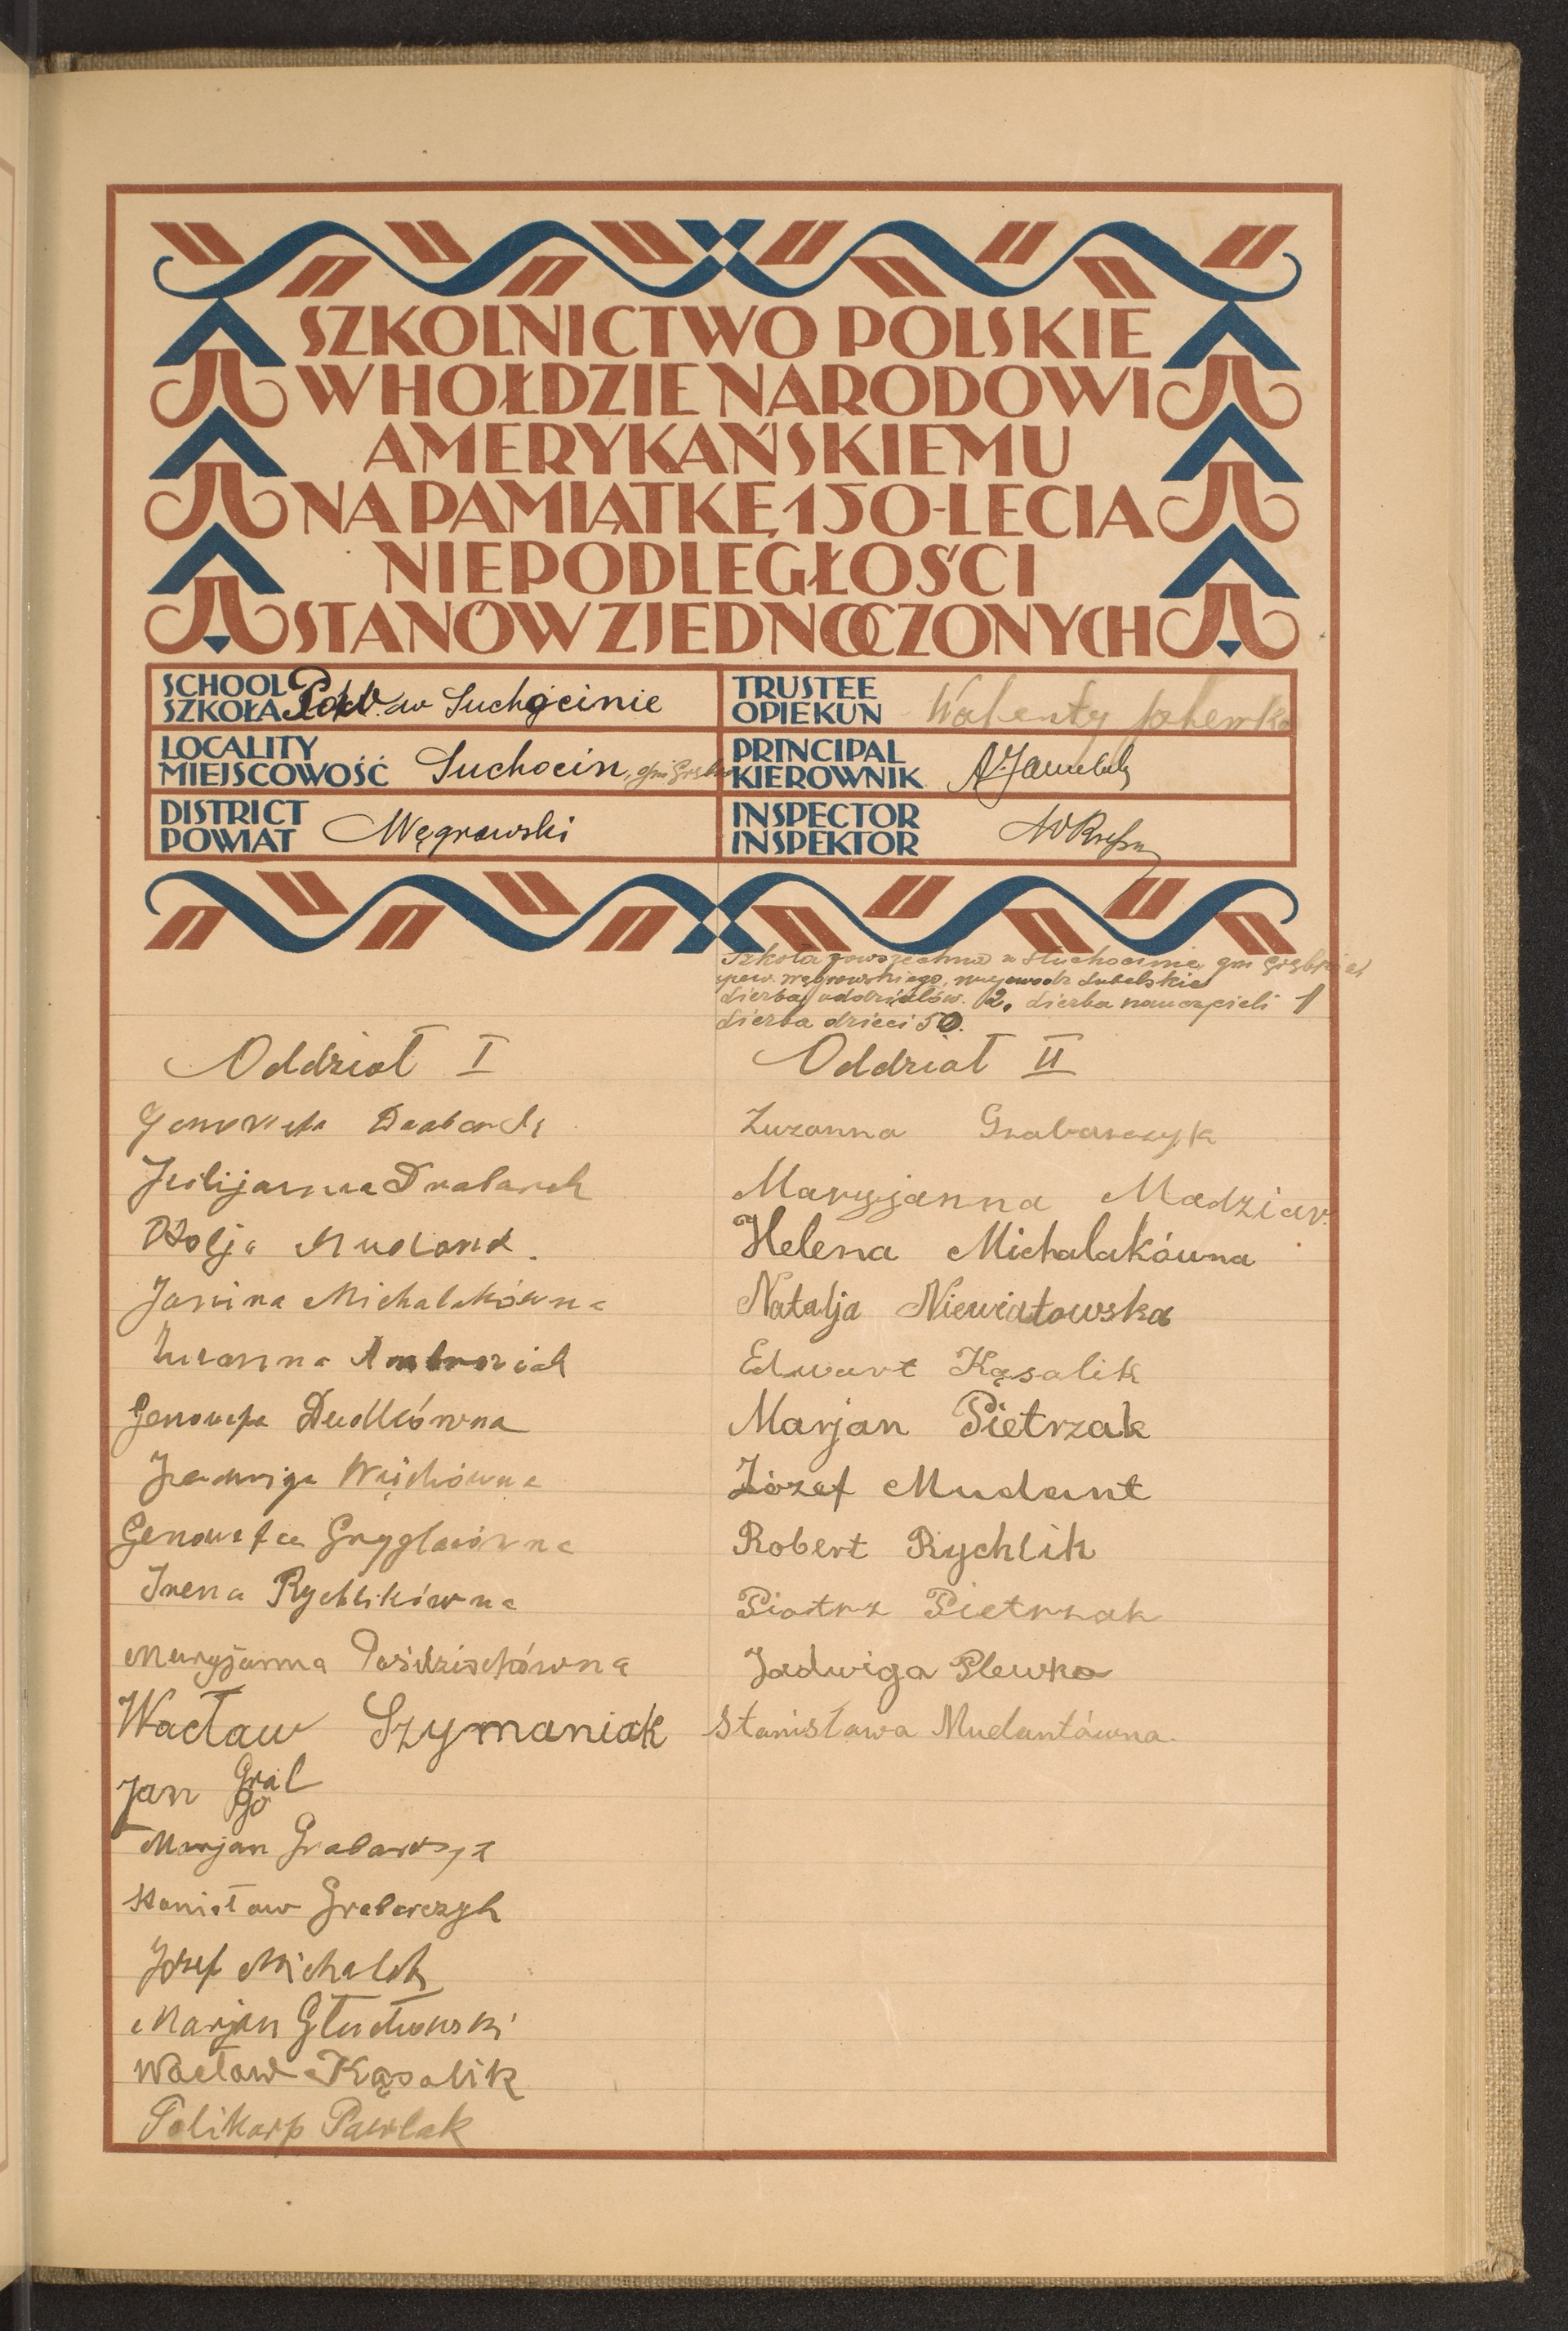 SZKOLNICTWO POLSKIE
W HOŁDZIE NARODOWI
AMERYKAŃSKIEMU
NA PAMIĄTKĘ 150-LECIA
NIEPODLEGŁOŚCI
STANÓW ZJEDNOCZONYCH
SCHOOL
SZKOŁA w Suchocinie
TRUSTEE
OPIEKUN Walenty
LOCALITY
MIEJSCOWOŚĆ Suchocin, gm
PRINCIPAL
KIEROWNIK
DISTRICT
POWIAT Węgrowski
INSPECTOR
INSPEKTOR
Szkoła powszechna w Suchocinie, gm
pow. węgrowskiego, wojewodz Lubelskie
Liczba oddziałów. 2, Liczba nauczycieli 1
Liczba dzieci 50.
Oddział I
Julijanna Drabarek
Janina Michalakówna
Zuzanna
Genowefa Dudkówna
Jadwiga Wójcikówna
Genowefa
Irena Rychlikówna
Maryjanna
Wacław Szymaniak
Jan Gral
go
Marjan Grabarczyk
Stanisław Grabarczyk
Józef Michalak
Marjan Głuchowski
Wacław Kąsalik
Polikarp Pawlak
Oddział II
Zuzanna Grabarczyk
Maryjanna Madziar
Helena Michalakówna
Natalja Niewiatowska
Edwart Kąsalik
Marjan Pietrzak
Józef Mudant
Robert Rychlik
Piotrz Pietrzak
Jadwiga Plewka
Stanisława Mudantówna